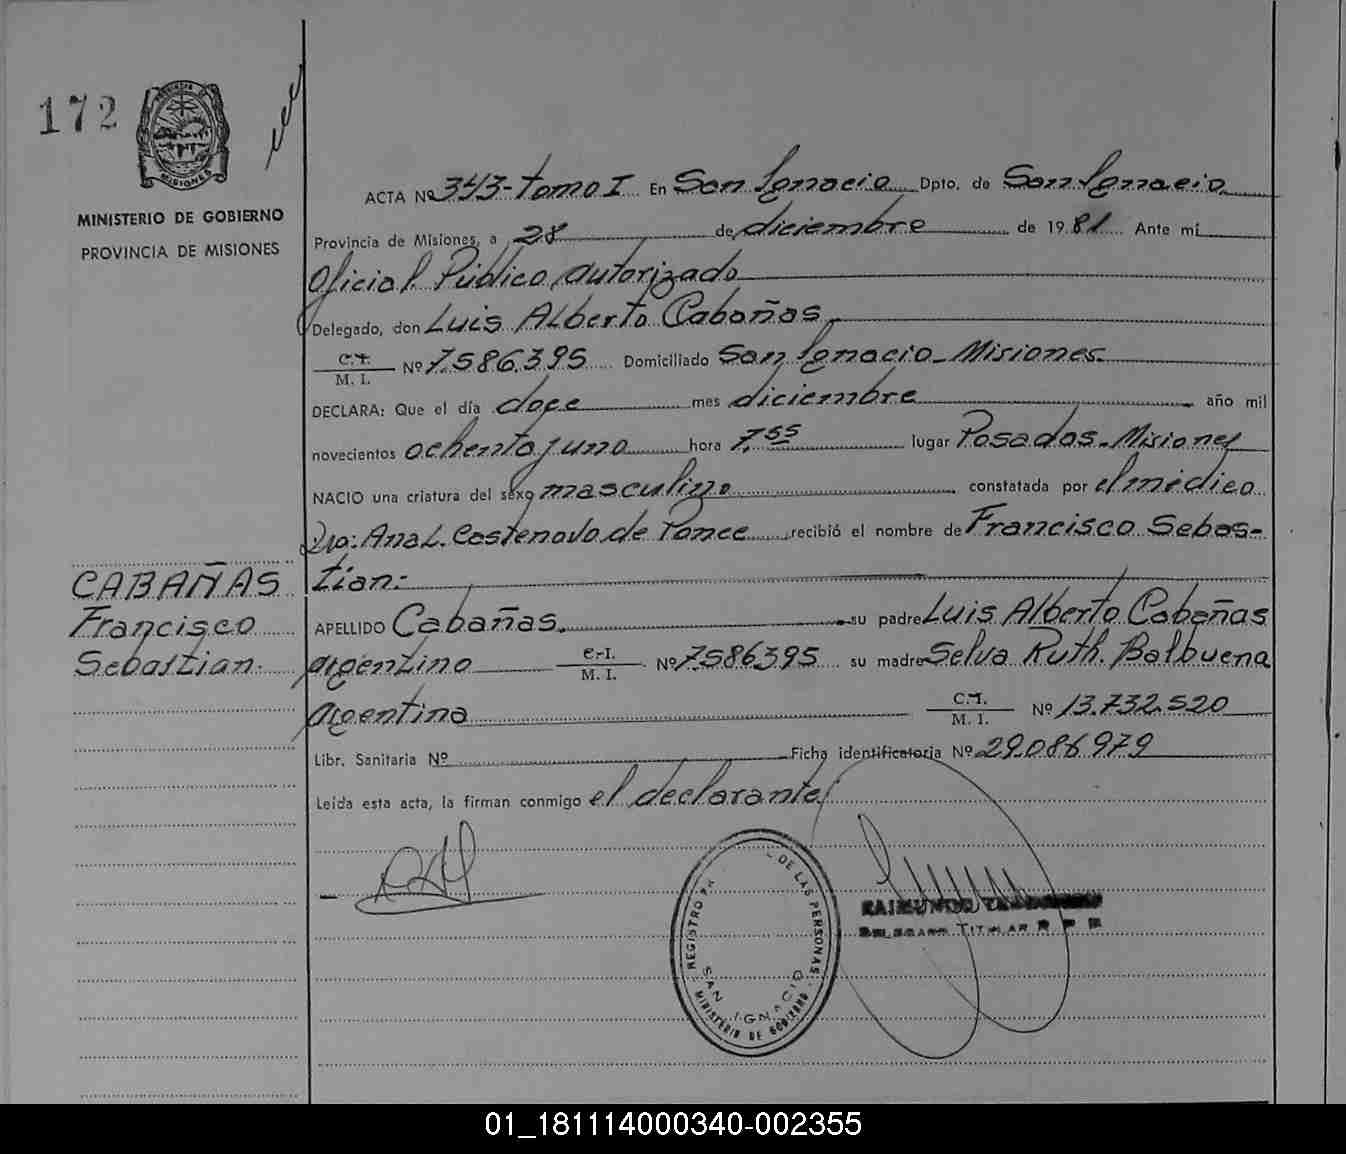 172
PROVINCIA DE
MISIONES
MINISTERIO DE GOBIERNO
PROVINCIA DE MISIONES
ACTA Nº 343-tomo I En San Ignacio Dpto. de San Ignacio
Provincia de Misiones, a 28 de diciembre de 1981 Ante mí
Oficial Público autorizado
Delegado, don Luis Alberto Cabañas
C.I. / M. I. Nº 7.586.395 Domiciliado San Ignacio - Misiones
DECLARA: Que el día doce mes diciembre año mil
novecientos ochenta y uno hora 7,55 lugar Posadas - Misiones
NACIO una criatura del sexo masculino constatada por el médico
Dra: Ana L. Costenovo de Ponce recibió el nombre de Francisco Sebas-
tian:-
CABAÑAS
Francisco
Sebastian.
APELLIDO Cabañas. su padre Luis Alberto Cabañas
argentino C.I. / M. I. Nº 7586395 su madre Selva Ruth Balbuena
argentina C.I. / M. I. Nº 13.732.520
Libr. Sanitaria Nº Ficha identificatoria Nº 29.086.979
Leída esta acta, la firman conmigo el declarante
REGISTRO DE LAS PERSONAS
SAN IGNACIO
MINISTERIO DE GOBIERNO
RAIMUNDO
DELEGADO TITULAR
01_181114000340-002355